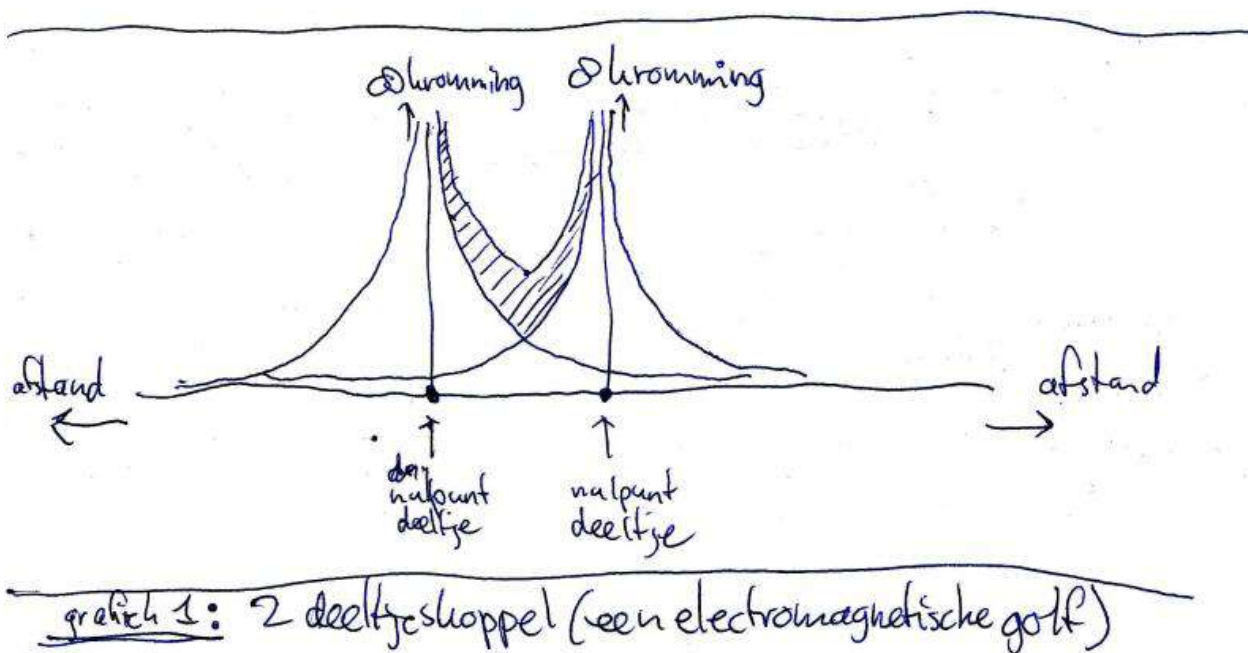 ∞ kromming ∞ kromming
afstand afstand
nulpunt nulpunt
deeltje deeltje
grafiek 1: 2 deeltjeskoppel (een electromagnetische golf)